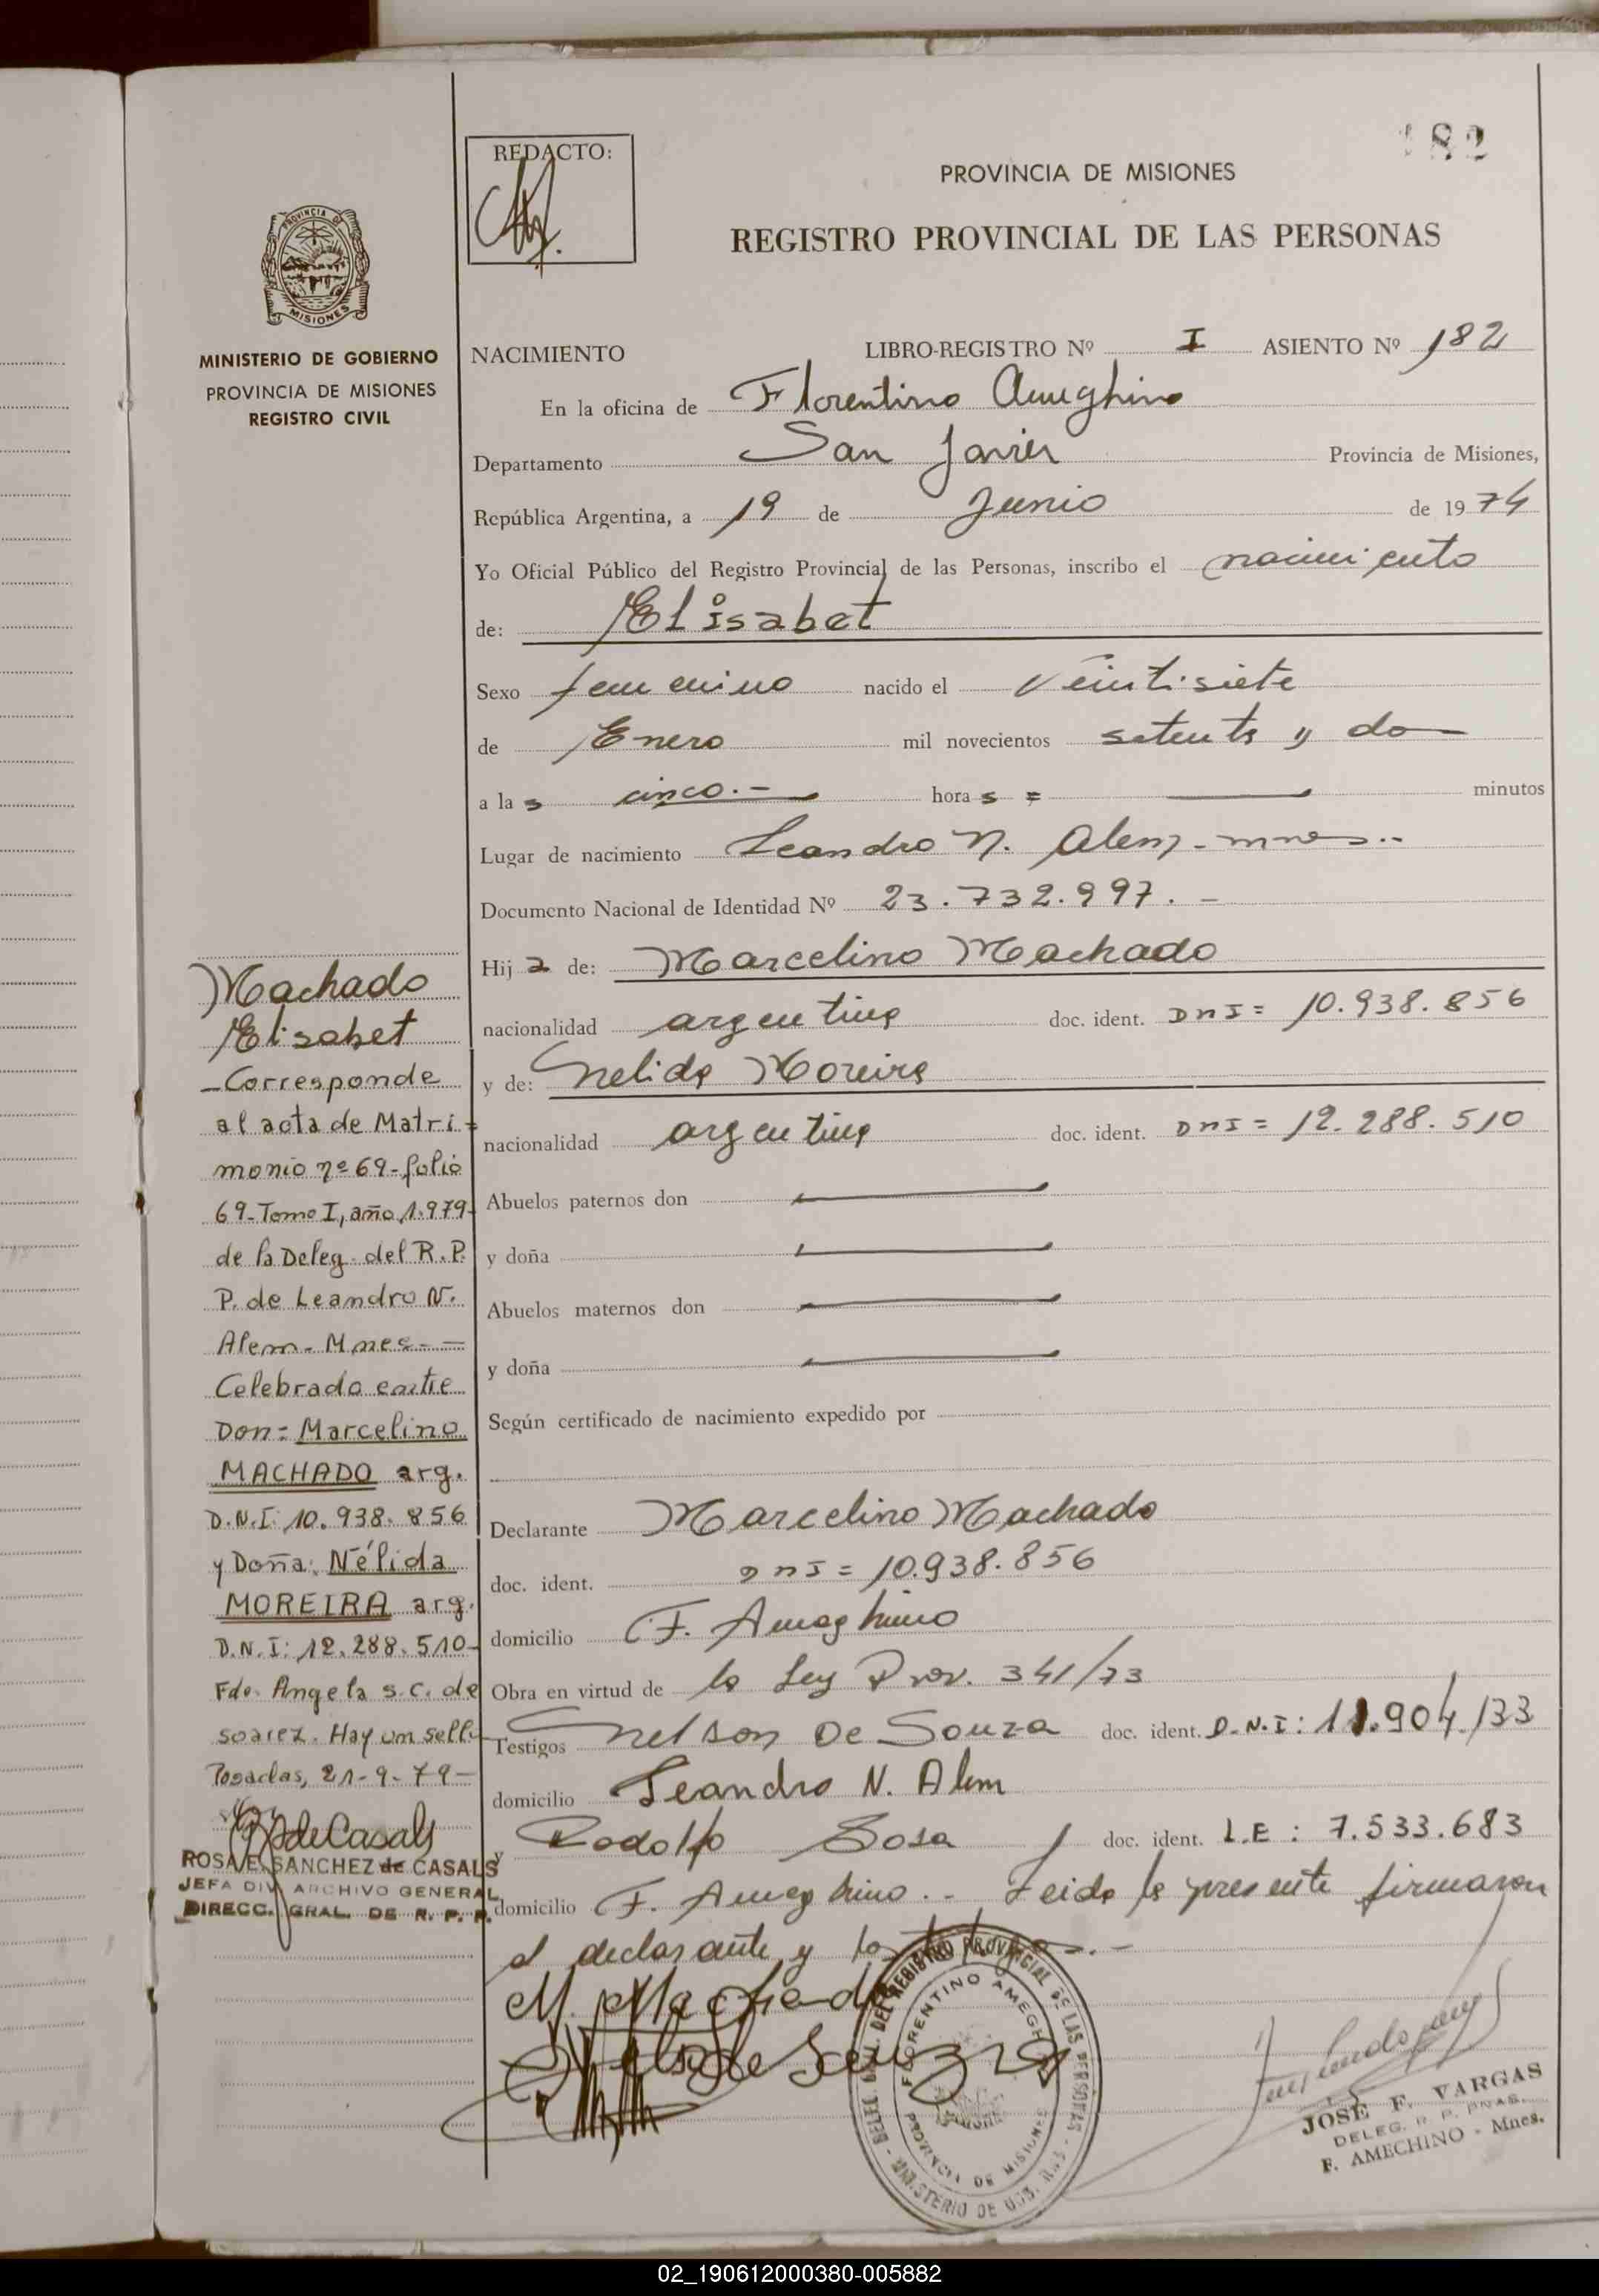 182
REDACTO:
PROVINCIA DE MISIONES
REGISTRO PROVINCIAL DE LAS PERSONAS
PROVINCIA DE
MISIONES
MINISTERIO DE GOBIERNO
PROVINCIA DE MISIONES
REGISTRO CIVIL
NACIMIENTO LIBRO-REGISTRO Nº I ASIENTO Nº 182
En la oficina de Florentino Ameghino
Departamento San Javier Provincia de Misiones,
República Argentina, a 19 de Junio de 1974
Yo Oficial Público del Registro Provincial de las Personas, inscribo el nacimiento
de: Elisabet
Sexo femenino nacido el Veintisiete
de Enero mil novecientos setenta y dos
a las cinco.- horas = minutos
Lugar de nacimiento Leandro N. Alem - mnes..
Documento Nacional de Identidad Nº 23.732.997.-
Hija de: Marcelino Machado
nacionalidad argentina doc. ident. DNI = 10.938.856
y de: Nelida Moreira
nacionalidad argentina doc. ident. DNI = 12.288.510
Abuelos paternos don
y doña
Abuelos maternos don
y doña
Según certificado de nacimiento expedido por
Declarante Marcelino Machado
doc. ident. DNI = 10.938.856
domicilio F. Ameghino
Obra en virtud de la Ley Prov. 341/73
Testigos Nelson De Souza doc. ident. D.N.I: 11.904.133
domicilio Leandro N. Alem
y Rodolfo Sosa doc. ident. L.E: 7.533.683
domicilio F. Ameghino.- Leida la presente firmaron
el declarante y los testigos.-
M. Machado
Nelson de Souza
Machado
Elisabet
-Corresponde
al acta de Matri=
monio nº 69-folio
69-Tomo I, año 1.979-
de la Deleg. del R.P.
P. de Leandro N.
Alem-Mnes-=
Celebrado entre
Don= Marcelino
MACHADO arg.
D.N.I: 10.938.856
y Doña: Nélida
MOREIRA arg.
D.N.I: 12.288.510-
Fdo. Angela S.C. de
Soarez. Hay un sello
Posadas, 21-9-79-
RdeCasals
ROSA E. SANCHEZ de CASALS
JEFA DIV ARCHIVO GENERAL
DIRECC. GRAL. DE R. P. P.
DELEG. GRAL. DEL REGISTRO PROVINCIAL DE LAS PERSONAS - MINISTERIO DE GOB.
FLORENTINO AMEGHINO
PROVINCIA DE MISIONES
JOSE F. VARGAS
DELEG. R. P. PNAS.
F. AMECHINO - Mnes.
02_190612000380-005882